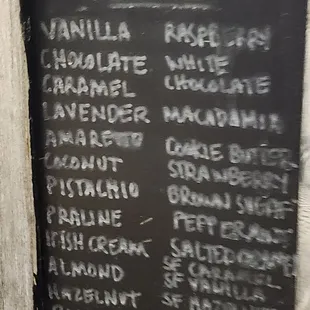 VANILLA
CHOCOLATE
CARAMEL
LAVENDER
AMARETTO
COCONUT
PISTACHIO
PRALINE
IRISH CREAM
ALMOND
HAZELNUT
RASPBERRY
WHITE
CHOCOLATE
MACADAMIA
COOKIE BUTTER
STRAWBERRY
BROWN SUGAR
PEPPERMINT
SALTED CARAMEL
SF CARAMEL
SF VANILLA
SF HAZELNUT